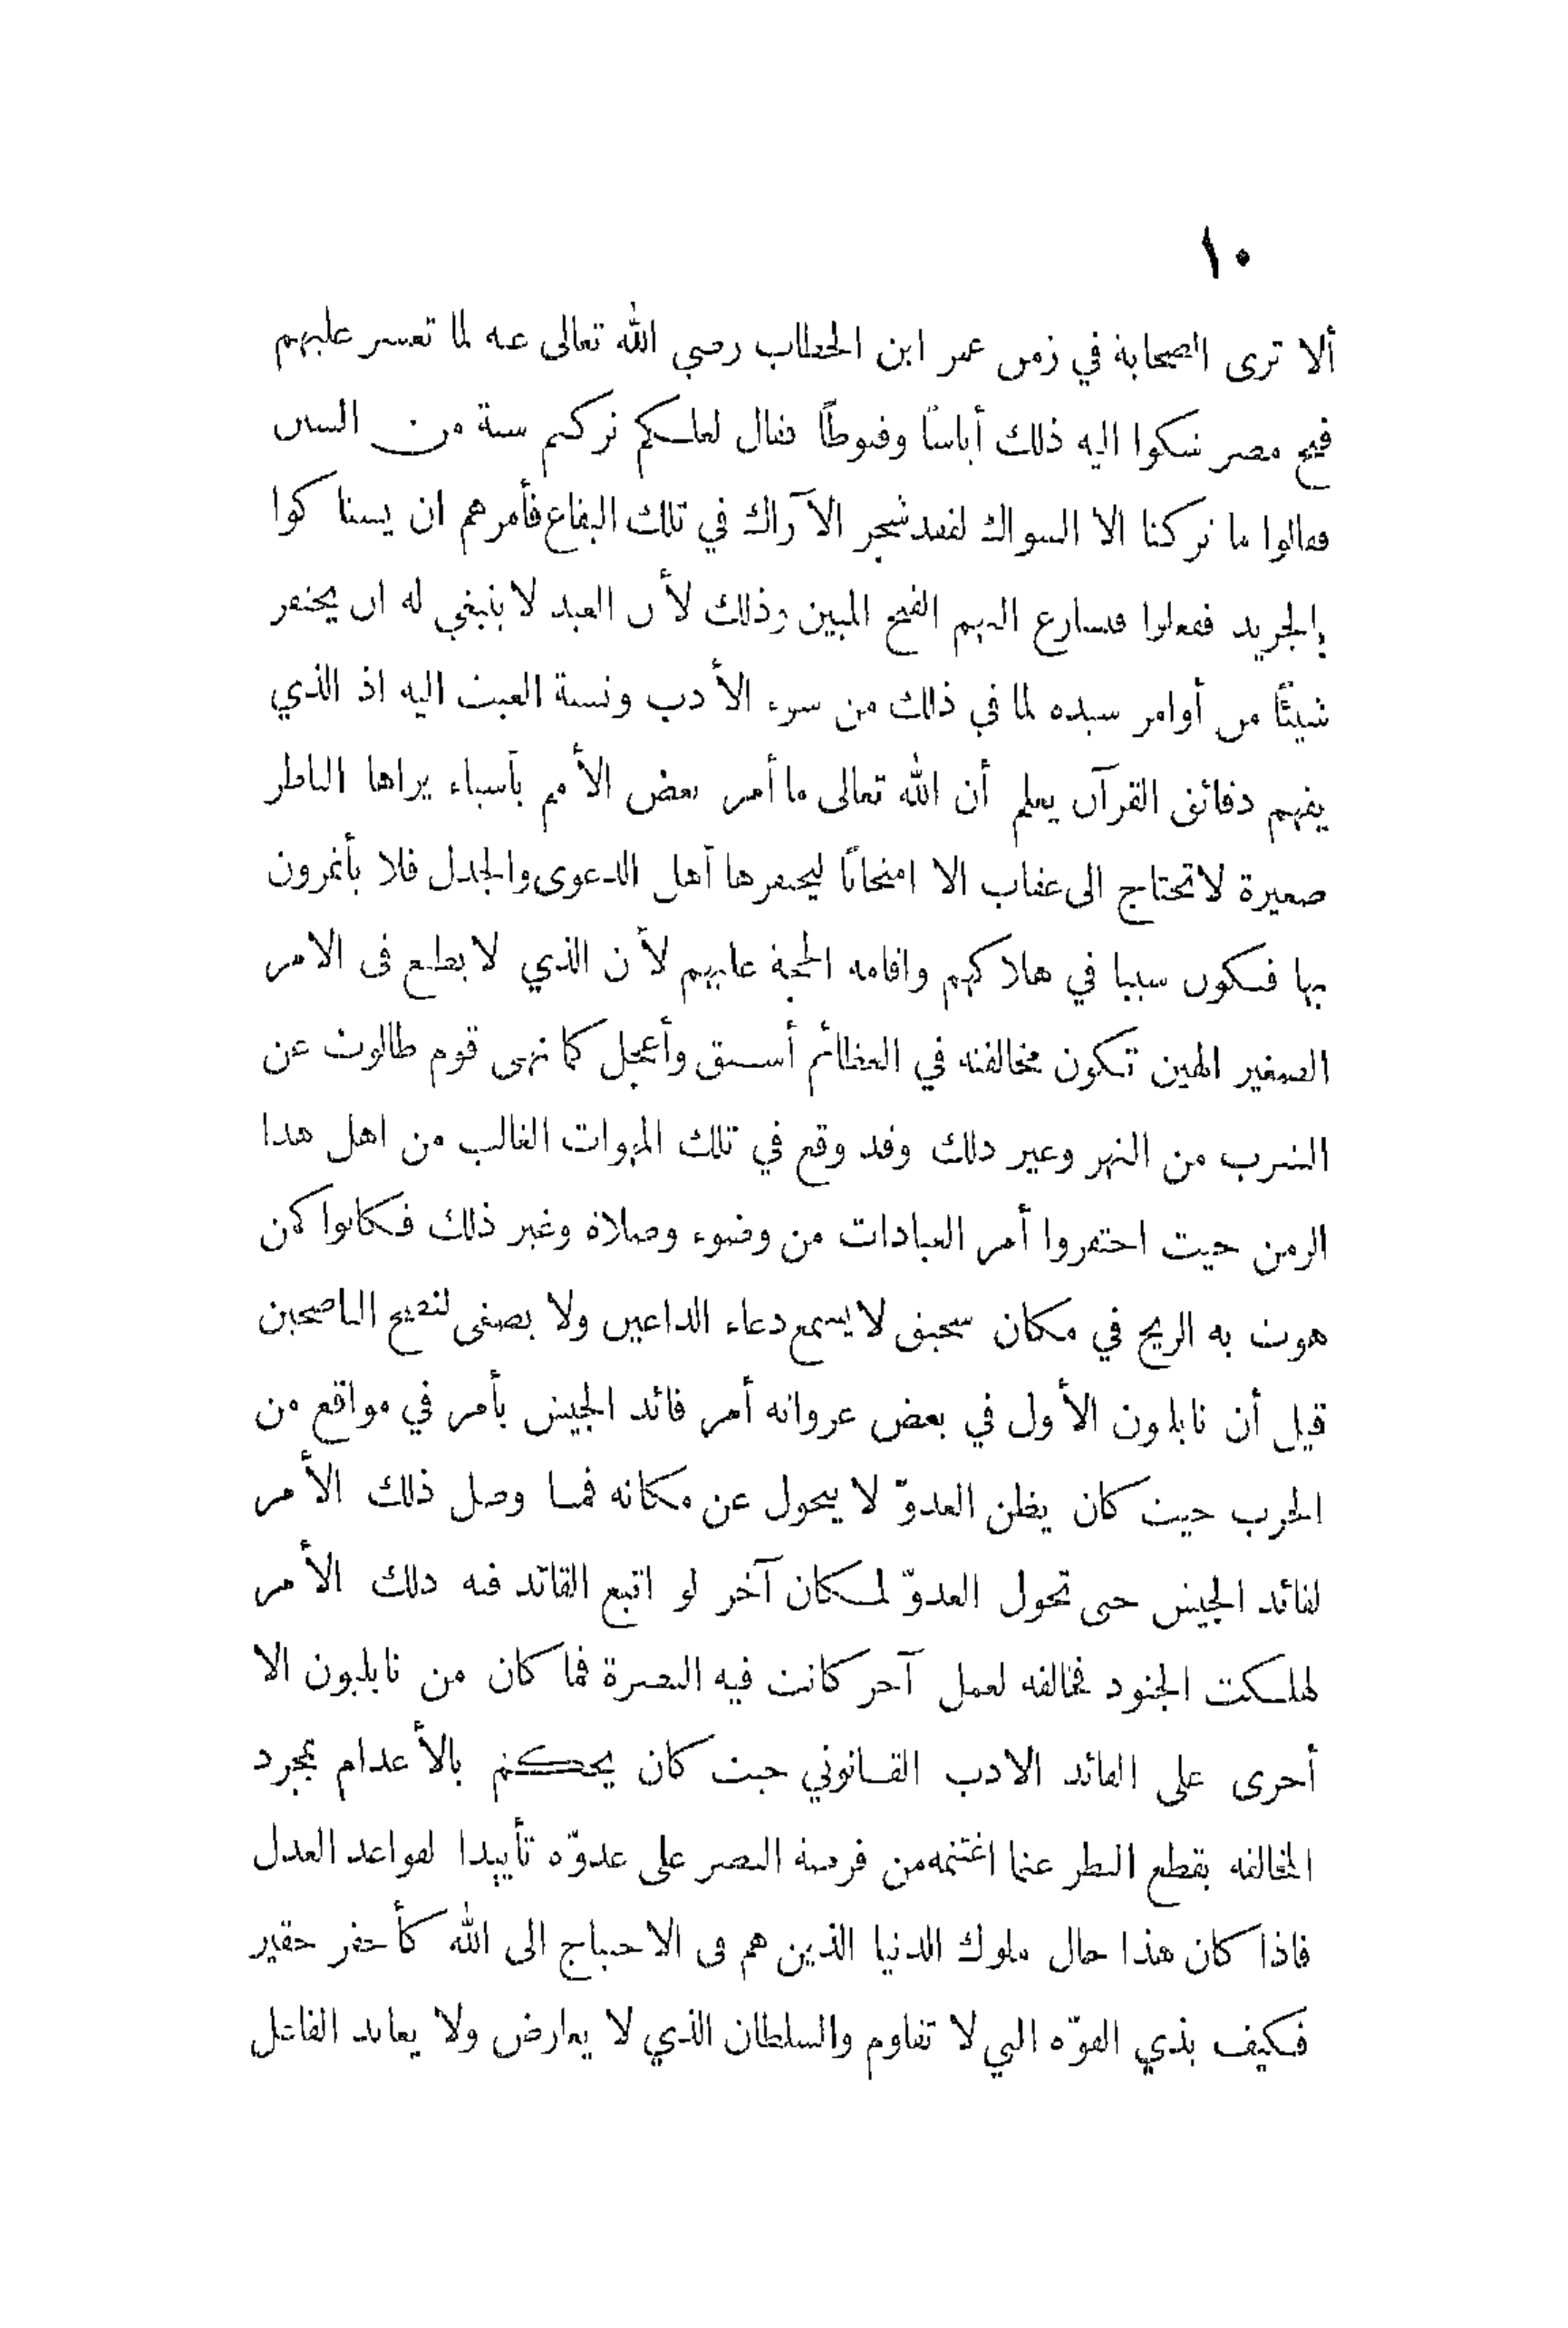 ١٠
ألا ترى الصحابة في زمن عمر ابن الخطاب رضي الله تعالى عنه لما تعسر عليهم
فتح مصر شكوا اليه ذلك أياسًا وقنوطًا فقال لعلكم تركتم سنة من السنن
فقالوا ما تركنا الا السواك لفقد شجر الآراك في تلك البقاع فأمرهم ان يستاكوا
بالجريد ففعلوا فسارع اليهم الفتح المبين وذلك لأن العبد لا ينبغي له ان يحتقر
شيئًا من أوامر سيده لما في ذلك من سوء الأدب ونسبة العبث اليه اذ الذي
يفهم دقائق القرآن يعلم أن الله تعالى ما أمر بعض الأمم بأشياء يراها الناظر
صغيرة لا تحتاج الى عقاب الا امتحانًا ليحتقرها أهل الدعوى والجدل فلا يأتمرون
بها فتكون سببا في هلاكهم واقامة الحجة عليهم لأن الذي لا يطيع فى الامر
الصغير الهين تكون مخالفته في العظائم أسبق وأعجل كما نهى قوم طالوت عن
الشرب من النهر وغير ذلك وقد وقع في تلك الهوات الغالب من اهل هذا
الزمن حيث احتقروا أمر العبادات من وضوء وصلاة وغير ذلك فكانوا كمن
هوت به الريح في مكان سحيق لا يسمع دعاء الداعين ولا يصغى لنصح الناصحين
قيل أن نابليون الأول في بعض غزواته أمر قائد الجيش بأمر في مواقع من
الحرب حيث كان يظن العدوّ لا يتحول عن مكانه فما وصل ذلك الأمر
لقائد الجيش حتى تحول العدوّ لمكان آخر لو اتبع القائد فيه ذلك الأمر
لهلكت الجنود فخالفه لعمل آخر كانت فيه النصرة فما كان من نابليون الا
أجرى على القائد الادب القانوني حيث كان يحكم بالأعدام بمجرد
المخالفة بقطع النظر عما اغتنمه من فرصة النصر على عدوّه تأييدا لقواعد العدل
فاذا كان هذا حال ملوك الدنيا الذين هم فى الاحتياج الى الله كأحقر حقير
فكيف بذي القوّة التي لا تقاوم والسلطان الذي لا يعارض ولا يعاند القائل